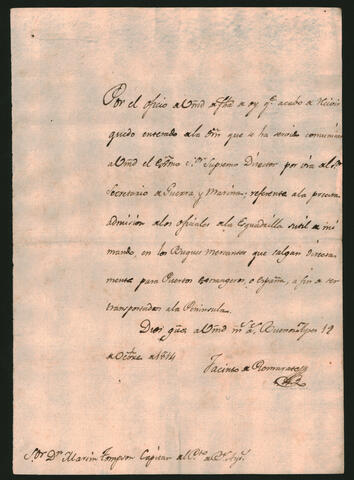 Por el oficio a Vmd de fha de oy qe. acabo a Recivir
quedo enterado a la Orn que se ha servido comunicar
a Vmd el Exmo Sor. Supremo Director por via al Sor.
Secretario a Guerra y Marina, referente a la precisa
admision a los oficiales a la Esquadrilla sutil a mi
mando, en los Buques Mercantes que salgan directa-
mente para Puertos extrangeros, o España, a fin de ser
transportados a la Peninsula.
Dios gue. a Vmd ms. as. Buenos Ayres 12
a Octre a 1814
Jacinto a Romarate
Sor. Dn Martin Tompson Capitan al Pto a Bs. Ays.